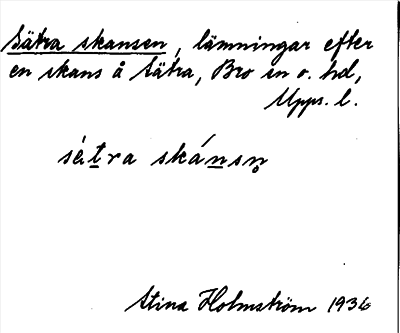 Sätra skansen, lämningar efter
en skans å Sätra, Bro sn o. hd,
Upps. l.
sè̀tra skánsn̥
Stina Holmström 1936